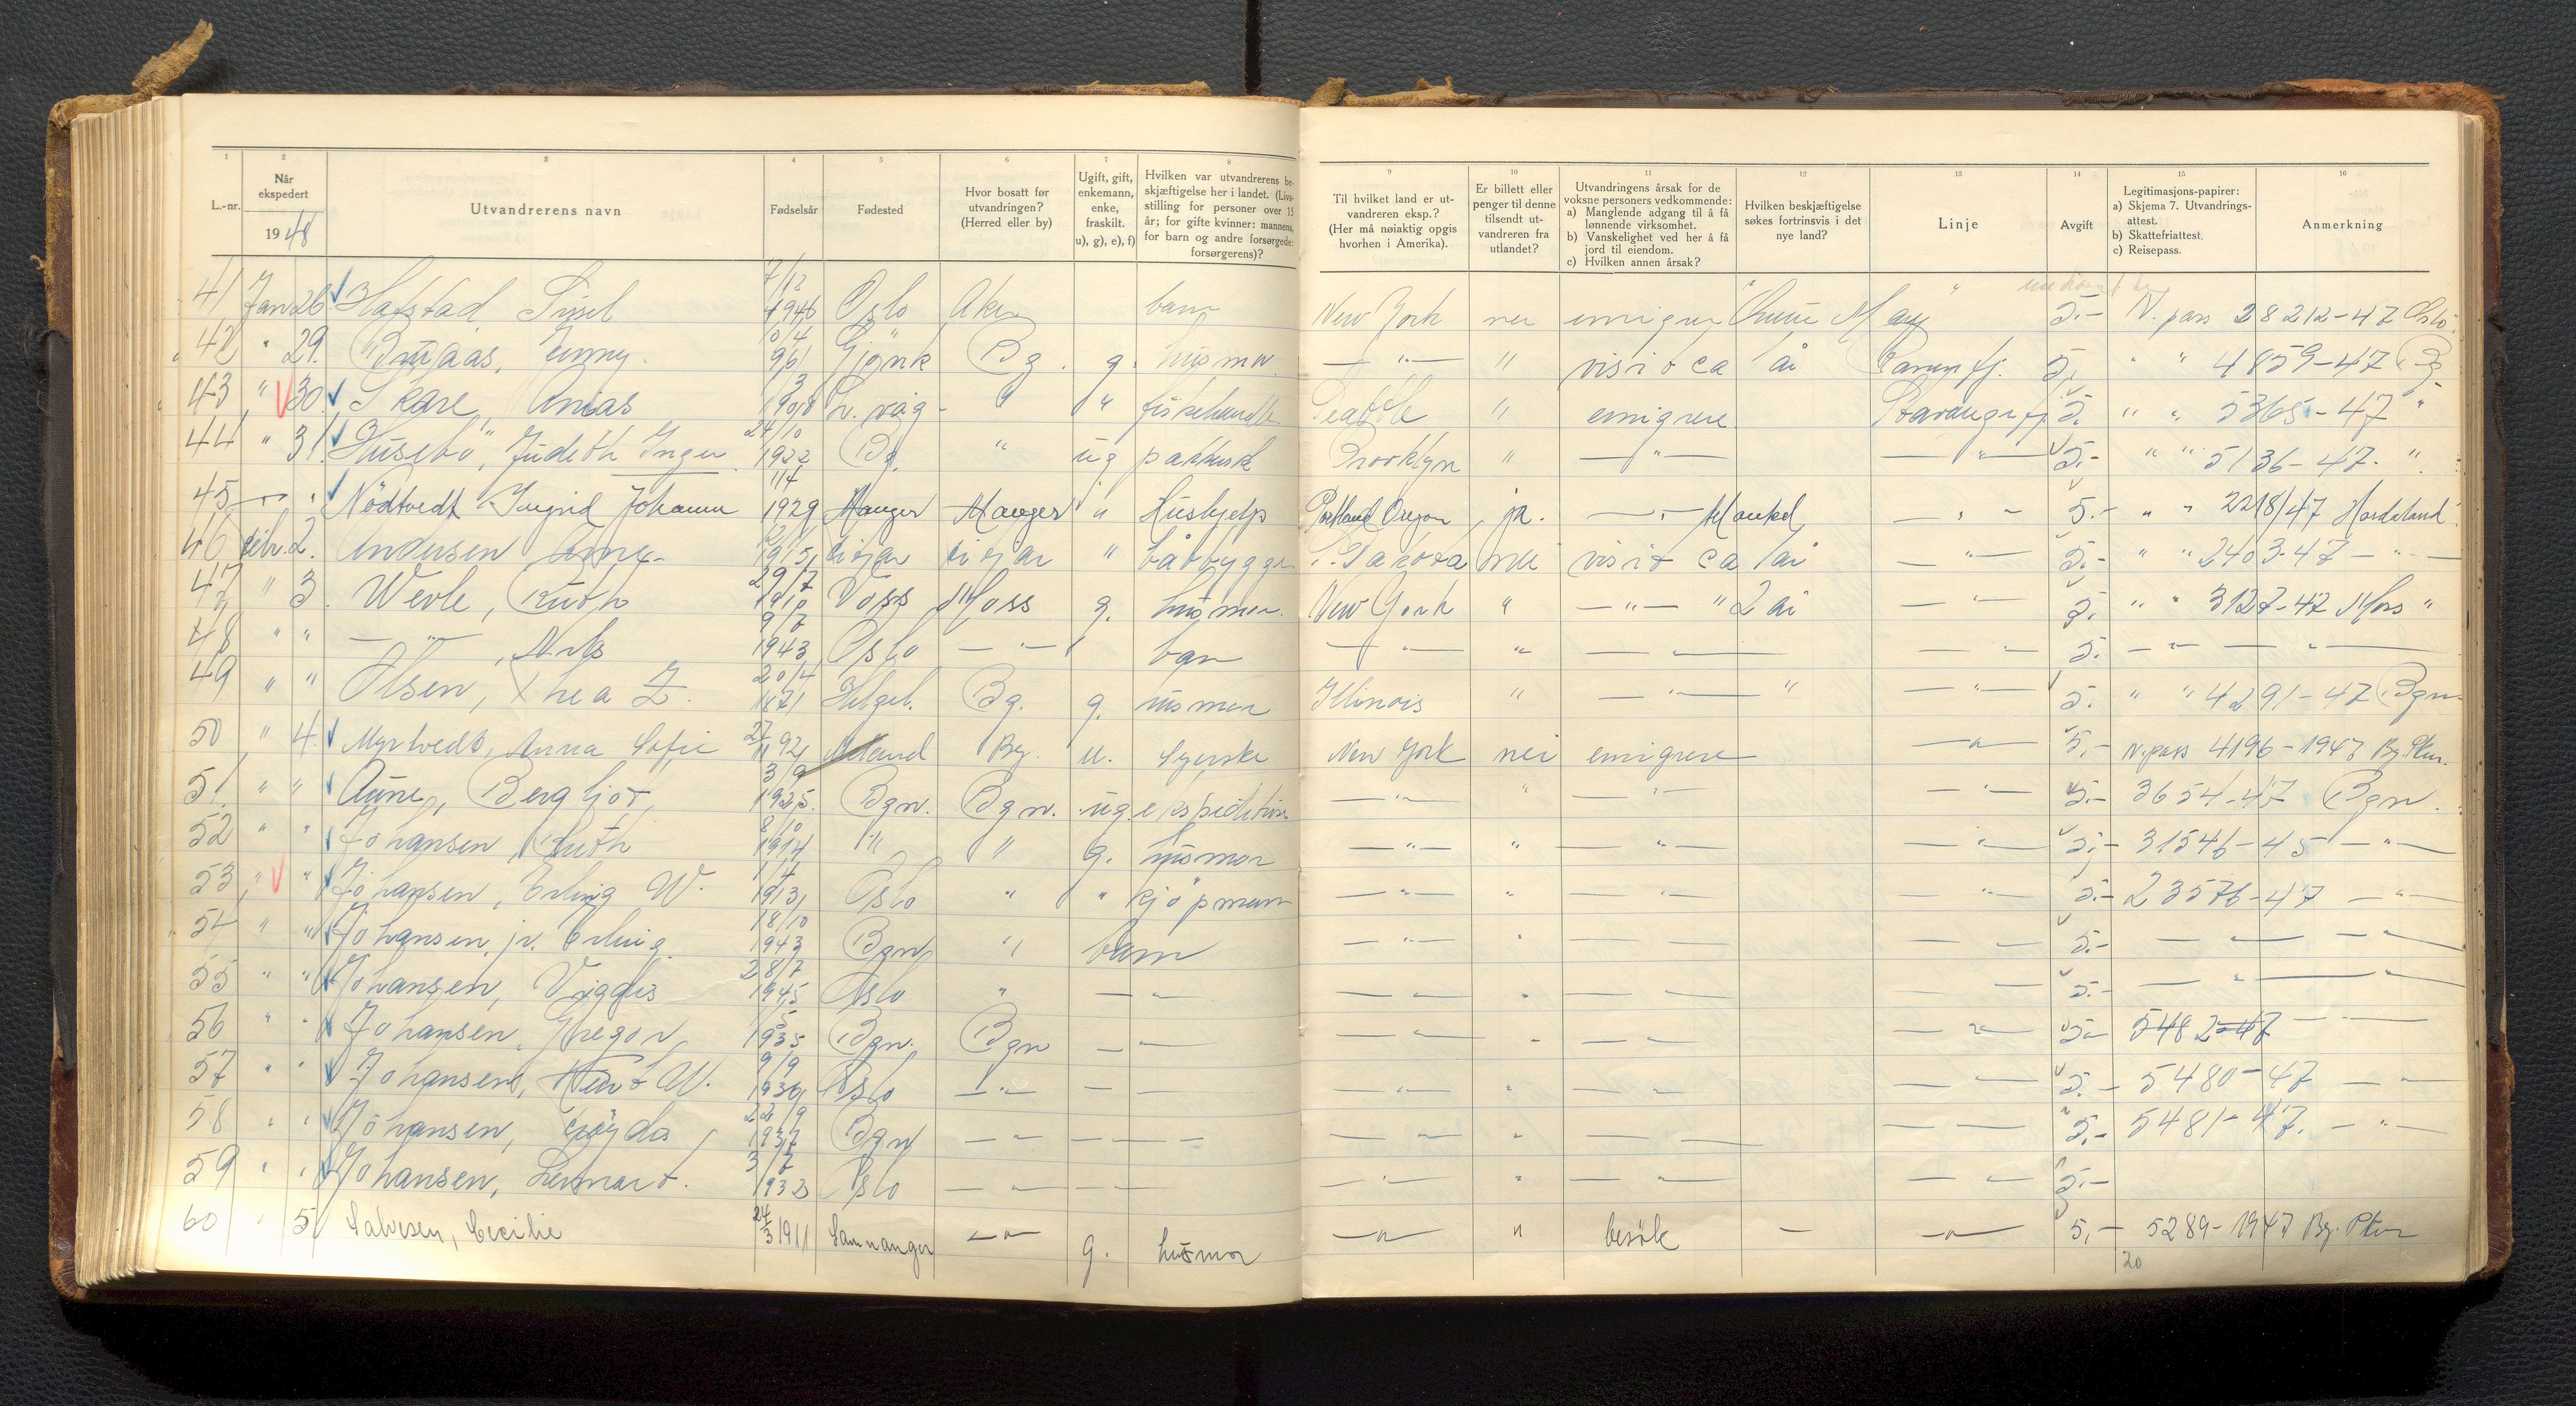 1 2 3 4 5 6 7 8 9 10 11 12 13 14 15 16
L.-nr. | Når ekspedert 1948 | Utvandrerens navn | Fødselsår | Fødested | Hvor bosatt før utvandringen? (Herred eller by) | Ugift, gift, enkemann, enke, fraskilt. u), g), e), f) | Hvilken var utvandrerens beskjæftigelse her i landet. (Livsstilling for personer over 15 år; for gifte kvinner: mannens, for barn og andre forsørgede: forsørgerens)? | Til hvilket land er utvandreren eksp.? (Her må nøiaktig opgis hvorhen i Amerika). | Er billett eller penger til denne tilsendt utvandreren fra utlandet? | Utvandringens årsak for de voksne personers vedkommende: a) Manglende adgang til å få lønnende virksomhet. b) Vanskelighet ved her å få jord til eiendom. c) Hvilken annen årsak? | Hvilken beskjæftigelse søkes fortrinsvis i det nye land? | Linje | Avgift | Legitimasjons-papirer: a) Skjema 7. Utvandringsattest. b) Skattefriattest. c) Reisepass. | Anmerkning
41 Jan 26. Hafstad Sissel 7/12 1946 Oslo Aker barn New York nei emigrere 5.- N. pass 28212-47 Oslo.
42 " 29. Jenny. 10/4 Gjövik Bg. g. husmor —"— " visit ca 1 år 5. " " 4859-47 Bg
43 " 30. Skare, Anias 1908 " " fiskehandl. Seattle " emigrere Stavangerfj. 5. " " 5365-47 "
44 " 31. Husebö, Judith Inger 24/10 1922 Bg. " ug Brooklyn " —"— —"— 5.- " " 5136-47. "
45 —"— " Nödtvedt Ingrid Johanne 1/4 1929 Manger Manger " Hushjelp Portland Oregon ja. —"— —"— 5.- " " 2218/47 Hordaland
46 Febr. 2. Andersen 1915 " båtbygger S. Dakota nei visit ca 1 år —"— 5.- " " 2403-47 —"—
47 " 3. Wevle, Ruth 29/7 1910 Voss Moss g. husmor. New York " —"— " 2 år —"— 5. " " 3127-47 Moss "
48 " " —"—, Nils 9/7 1943 Oslo —"— barn —"— " —"— —"— 5. —"— —"—
49 " " Olsen, Thea Z. 20/4 1871 Helgel. Bg. g. husmor Illinois " —"— " —"— 5. " " 4291-47 Bgn
50 " 4. Myrtvedt, Anna Sofie 27/11 92 Bg. u. Syerske New York nei emigrere —"— 5.- N. pass 4196-1947 Bg. Pkm.
51 " " Aune, Bergliot 3/9 1925. Bgn. Bgn. ug. —"— " —"— —"— 5.- 3654-47 Bgn.
52 " " Johansen, Ruth 8/10 1914 " " g. husmor —"— " —"— —"— 5.- 31546-45 —"—
53 " " Johansen, Erling W. 1/4 1913 Oslo " " kjöpmann —"— " —"— —"— 5.- 23576-47 —"—
54 " " Johansen jr. Erling 18/10 1943 Bgn " barn —"— " —"— —"— 5.- —"— —"—
55 " " Johansen, Viggdis 28/7 1945 Oslo " —"— —"— " —"— —"— 5.- —"— —"—
56 " " Johansen, Gregor 1935 Bgn. Bgn —"— —"— " —"— —"— 5.- 5482-47 —"—
57 " " Johansen, W. 9/9 1930 Oslo —"— — —"— " —"— —"— 5.- 5480-47 —"—
58 " " Johansen, 22/9 1937 Bgn —"— —"— —"— " —"— —"— 5.- 5481-47. —"—
59 " " Johansen, Lennart. 3/7 1932 Oslo —"— —"— —"— " —"— —"— 5.-
60 " 5 Salvesen, Cecilie 24/3 1911 Samnanger —"— g. husmor —"— " besök — —"— 5,- 5289-1947 Bg. Pkm
20